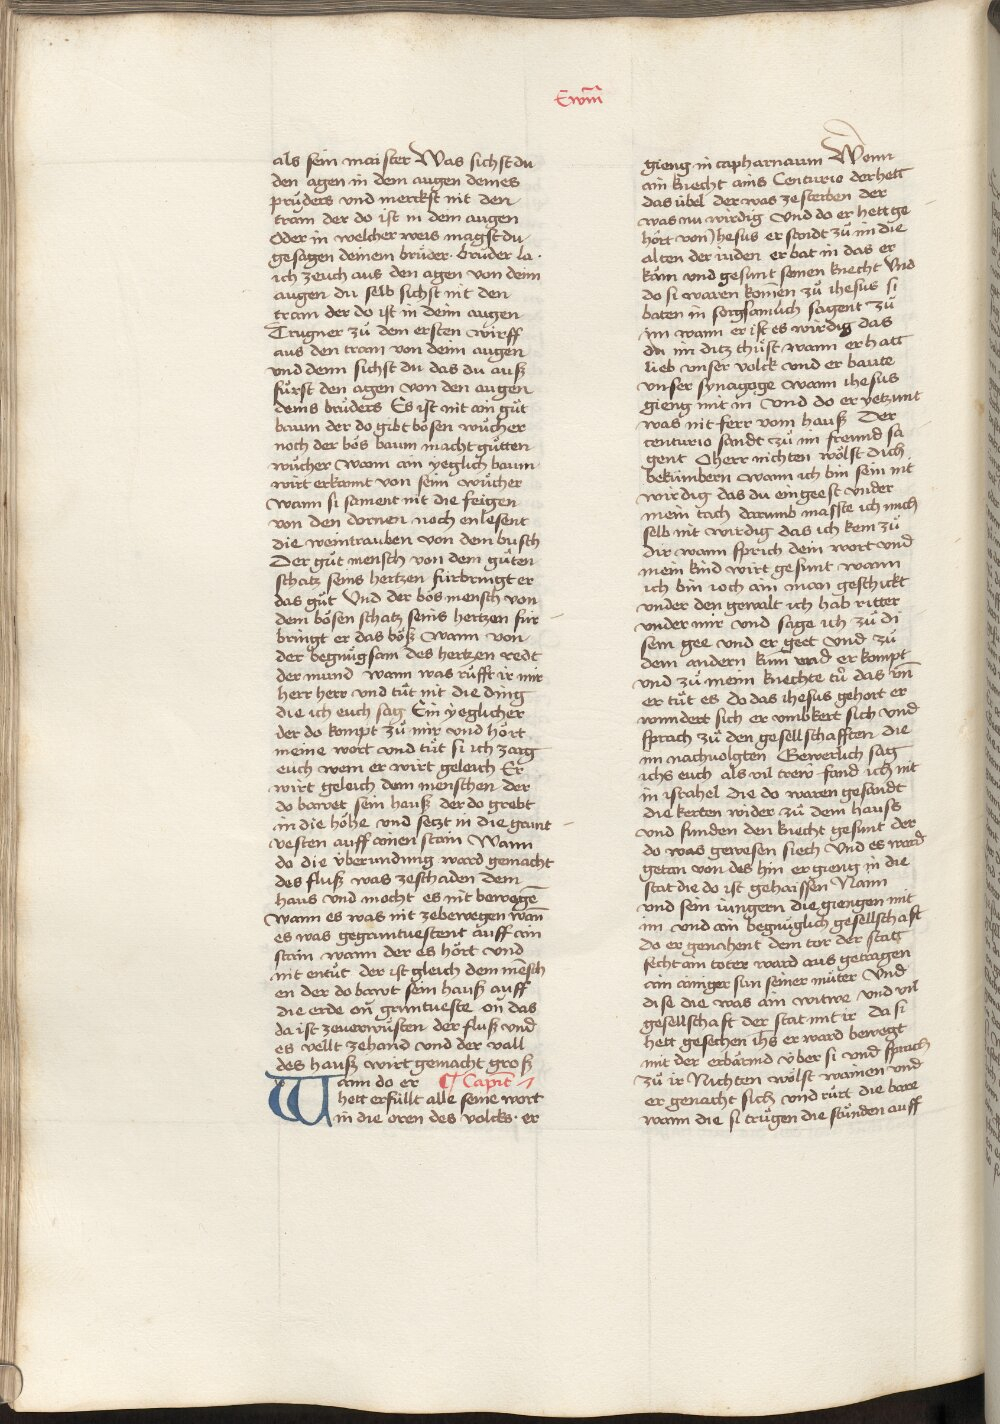 Ewm̄
als sein maister Was sichst du
den agen in dem augen deines
průders vnd merckst nit den
tram der do ist in dem augen
Oder in welcher weis magst du
gesagen deinem brůder · brůder la ·
ich zeuch aus den agen von deim
augen du selb sichst nit den
tram der do ist in deim augen
Trugner zů dem ersten wirff
aus den tram von deim augen
vnd denn sichst du das du auß
fůrst den agen von den augen
deins brůders Es ist nit ain gůt
baum der do gibt bösen wůcher
noch der bös baum macht gůtten
wůcher wann ain yeglich baum
wirt erkannt von seim wůcher
wann si sament nit die feigen
von den dornen noch enlesent
die weintrauben von dem busch
Der gůt mensch von dem gůten
schatz seins hertzen fürbringt er
das gůt Vnd der bös mensch von
dem bösen schatz seins hertzen für
bringt er das böß wann von
der begnůgsam des hertzen redt
der mund wann was růfft ir mir
herr herr vnd tůt nit die ding
die ich euch sag Ein yeglicher
der do kompt zů mir vnd hört
meine wort vnd tůt si ich zaig
euch wem er wirt geleich Er
wirt geleich dem menschen der
do bawet sein hauß der do grebt
in die höhe vnd setzt in die grunt
vesten auff ainen stain Wann
do die vberundung ward gemacht
des fluß was zeschaden dem
haus vnd mocht es nit bewegē
wann es was nit zebewegen wān
es was gegruntuestent auff ain
stain wann der es hört vnd
nit entůt der ist gleich dem mēsch
en der do bawt sein hauß auff
die erde on gruntueste on das
da ist zeuerwůsten der fluß vnd
es vellt zehand vnd der vall
des hauß wirt gemacht groß
Wann do er ¶ Capitl
hett erfüllt alle seine wort
in die oren des volcks · er
gieng in capharnaum Wenn
ain knecht ains Centurio der hett
das übel der was zesterben der
was nu wirdig Vnd do er hett ge
hört von Jhesus er sandt zů im die
alten der iuden er bat in das er
käm vnd gesunt seinen knecht Vnd
do si waren komen zů ihesus si
baten in sorgsamlich sagent zů
im wann er ist es wirdig das
du im ditz thůst wann er hatt
lieb vnser volck vnd er baute
vnser synagoge wann ihesus
gieng mit in Vnd do er yetzunt
was nit ferr vom hauß Der
centurio sandt zů im freund sa
gent O herr nichten wölst dich
bekümbern wann ich bin sein nit
wirdig das du eingeest vnder
mein tach darumb masste ich mich
selb nit wirdig das ich kem zů
dir wann sprich dein wort vnd
mein kind wirt gesunt wann
ich bin ioch ain man geschickt
vnder den gewalt ich hab ritter
vnder mir vnd sage ich zů di
sem gee vnd er geet Vnd zů
dem andern kum vnd er kompt
vnd zů meim knechte tů das vn̄
er tůt es do das ihesus gehort er
wundert sich er vmbkert sich vnd
sprach zů den gesellschafften die
im nachuolgten Gewerlich sag
ichs euch als vil trew fand ich nit
in israhel die do waren gesandt
die kerten wider zů dem hauß
vnd funden den knecht gesunt der
do was gewesen siech Vnd es ward
getan von des hin er gieng in die
stat die do ist gehaissen Naim
vnd sein iungern die giengen mit
im vnd ain begnůglich gesellschaft
do er genehent dem tor der statt
secht ain toter ward aus getragen
ain ainiger sun seiner můter Vnd
dise die was ain witwe vnd vil
gesellschaft der stat mit ir da si
hett gesechen ih̄s er ward bewegt
mit der erbärmd vber si vnd sprach
zů ir Nichten wölst wainen vnd
er genacht sich vnd rürt die bare
wann die si trůgen die stůnden auff